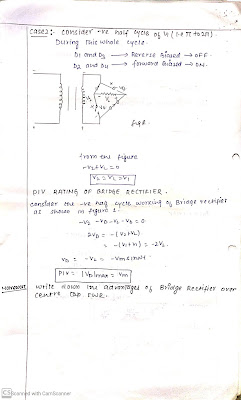 Case2:- Consider -ve half cycle of V (i.e π to 2π).
During this whole cycle.
D1 and D3 → Reverse Biased → OFF.
D2 and D4 → forward Biased → ON.
fig 2.
from the figure
-V2+VL=0
VL=V2=V1
PIV RATING OF BRIDGE RECTIFIER.
Consider the -ve half cycle working of Bridge rectifier
as shown in figure 2.
= -(V1+V1) = -2V2.
VD = -V2 = -Vmsinωt
PIV = |VD|max = Vm
Homework
Write down the advantages of Bridge Rectifier over
centre tap FWR.
CS Scanned with CamScanner